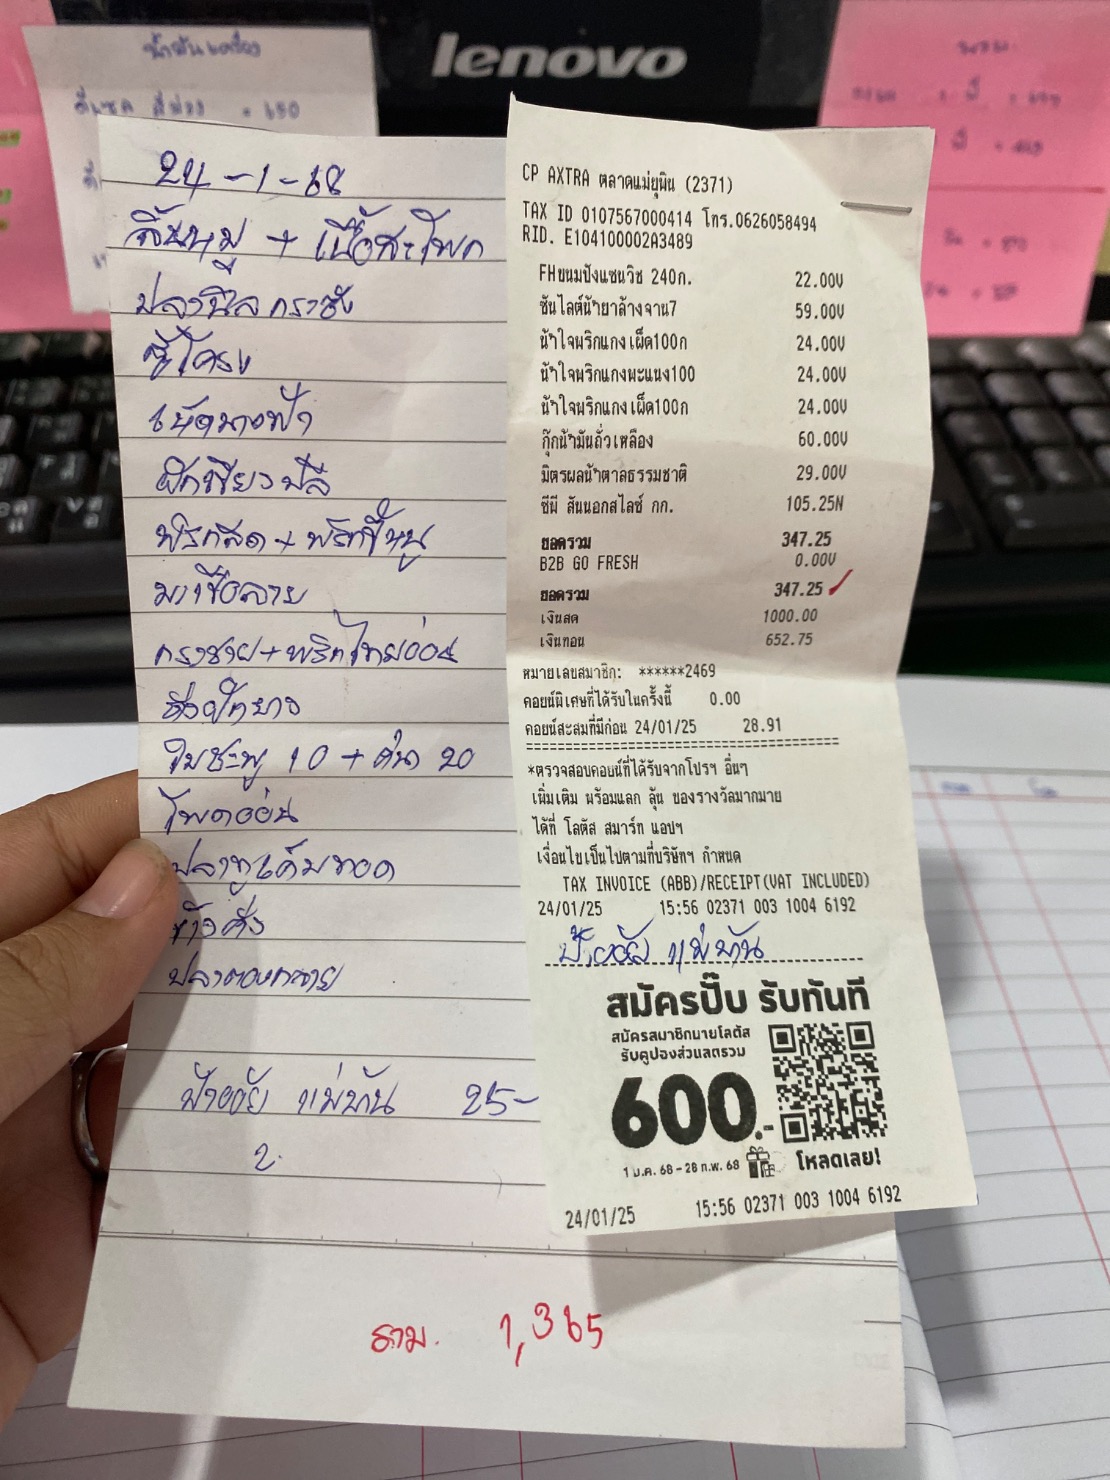 lenovo
น้ำมันเครื่อง
24-1-68
ลิ้นหมู + เนื้อสะโพก
ปลานิลกระชัง
ซี่โครง
เห็ดนางฟ้า
พริกสด + พริกขี้หนู
มะเขือลาย
กระชาย + พริกไทยอ่อน
ถั่วฝักยาว
ใบชะพู 10 + คะน้า 20
โพดอ่อน
ปลาทูเค็มทอด
ปลาตองกราย
ป้าอวัย แม่บ้าน 25-
2.
รวม. 1,365
CP AXTRA ตลาดแม่ยุพิน (2371)
TAX ID 0107567000414 โทร.0626058494
RID. E104100002A3489
FHขนมปังแซนวิช 240ก. 22.00V
ซันไลต์น้ำยาล้างจาน7 59.00V
น้ำใจพริกแกงเผ็ด100ก 24.00V
น้ำใจพริกแกงพะแนง100 24.00V
น้ำใจพริกแกงเผ็ด100ก 24.00V
กุ๊กน้ำมันถั่วเหลือง 60.00V
มิตรผลน้ำตาลธรรมชาติ 29.00V
ซีพี สันนอกสไลซ์ กก. 105.25N
ยอดรวม 347.25
B2B GO FRESH 0.00V
ยอดรวม 347.25
เงินสด 1000.00
เงินทอน 652.75
หมายเลขสมาชิก: ******2469
คอยน์พิเศษที่ได้รับในครั้งนี้ 0.00
คอยน์สะสมที่มีก่อน 24/01/25 28.91
*ตรวจสอบคอยน์ที่ได้รับจากโปรฯ อื่นๆ
เพิ่มเติม พร้อมแลก ลุ้น ของรางวัลมากมาย
ได้ที่ โลตัส สมาร์ท แอปฯ
เงื่อนไขเป็นไปตามที่บริษัทฯ กำหนด
TAX INVOICE (ABB)/RECEIPT(VAT INCLUDED)
24/01/25 15:56 02371 003 1004 6192
ป้าอวัย แม่บ้าน
สมัครปั๊บ รับทันที
สมัครสมาชิกมายโลตัส
รับคูปองส่วนลดรวม
600.-
1 ม.ค. 68 - 28 ก.พ. 68 โหลดเลย!
24/01/25 15:56 02371 003 1004 6192